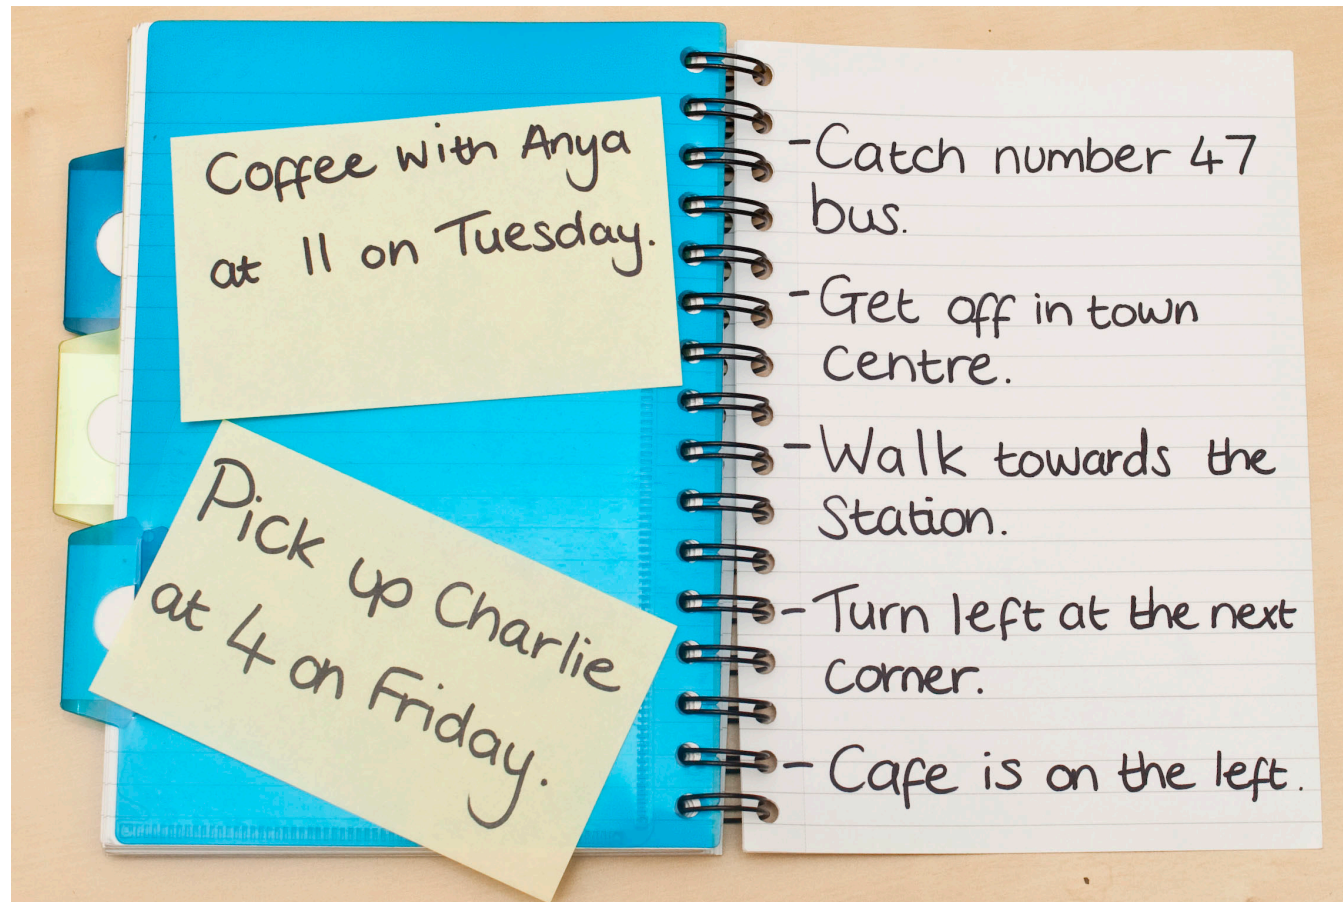 Coffee with Anya
at 11 on Tuesday.
Pick up Charlie
at 4 on Friday.
-Catch number 47
bus.
-Get off in town
Centre.
-Walk towards the
Station.
-Turn left at the next
corner.
- Cafe is on the left.